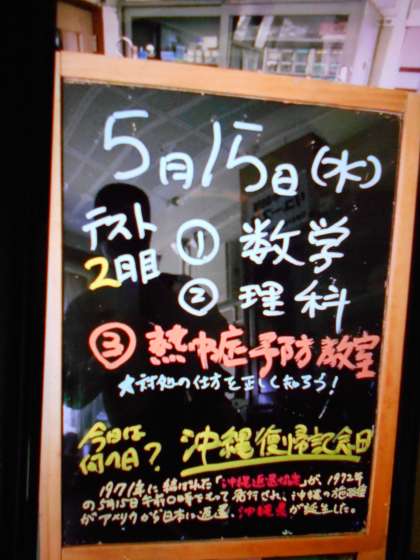 5月15日(水)
テスト 2日目
① 数学
② 理科
③ 熱中症予防教室
★対処の仕方を正しく知ろう!
今日は何の日? 沖縄復帰記念日
1971年に結ばれた「沖縄返還協定」が、1972年
の5月15日午前0時をもって発行され、沖縄の施政権
がアメリカから日本に返還、沖縄県が誕生した。